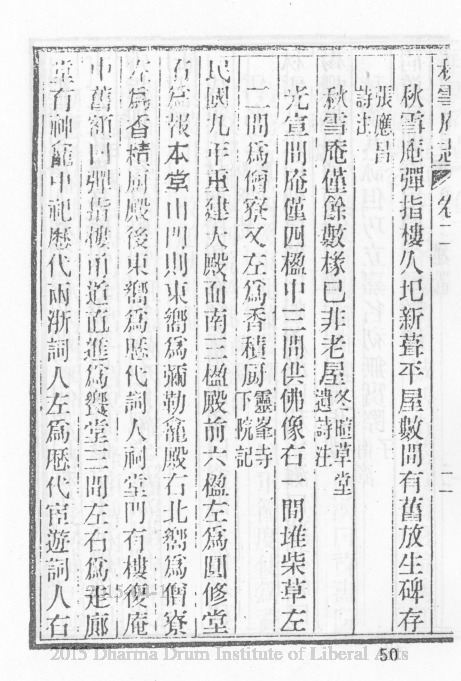 秋雪庵志 卷二 二
秋雪庵彈指樓久圯新葺平屋數間有舊放生碑存
張應昌
詩注
秋雪庵僅餘數椽已非老屋 冬暄草堂
遺詩注
光宣間庵僅四楹中三間供佛像右一間堆柴草左
二間為僧寮又左為香積厨 靈峯寺
下院記
民國九年重建大殿面南三楹殿前六楹左為圓修堂
右為報本堂山門則東嚮為彌勒龕殿右北嚮為僧寮
左為香積厨殿後東嚮為歷代詞人祠堂門有樓復庵
中舊額曰彈指樓甬道直進為饗堂三間左右為走廊
堂有神龕中祀歷代兩浙詞人左為歷代宦遊詞人右
50
2015 Dharma Drum Institute of Liberal Arts